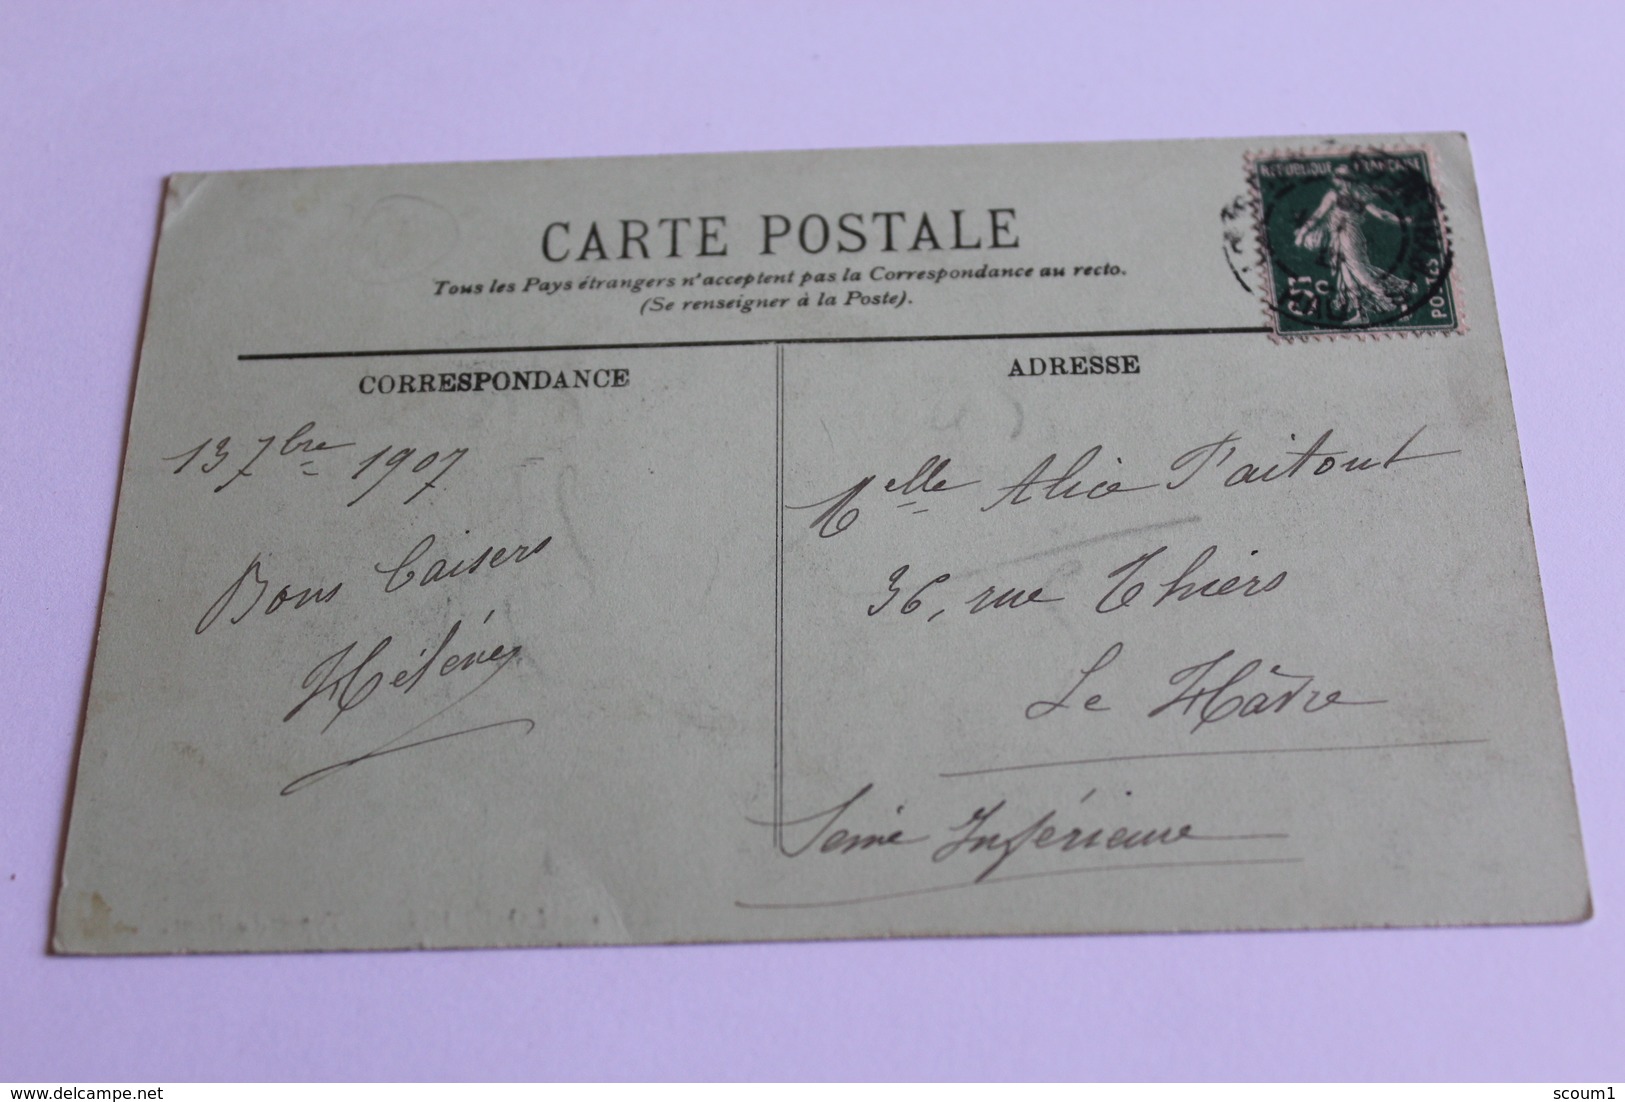 RÉPUBLIQUE FRANÇAISE
POSTES
CARTE POSTALE
Tous les Pays étrangers n'acceptent pas la Correspondance au recto.
(Se renseigner à la Poste).
CORRESPONDANCE
13 7bre 1907
Bons baisers
Hélène
ADRESSE
Melle Alice Faitout
36, rue Thiers
Le Hâvre
Seine Inférieure
delcampe.net
scoum1